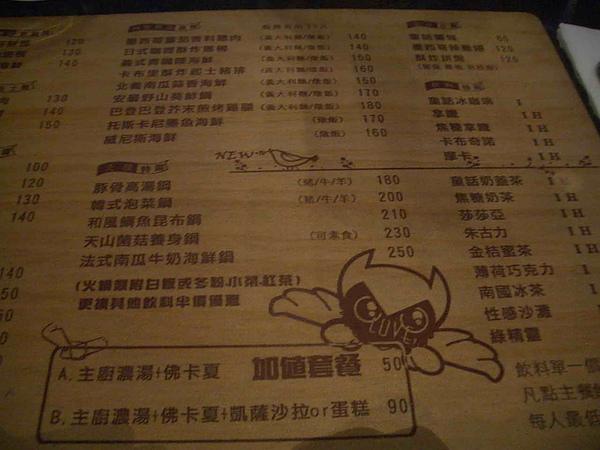 120
120
130
墨西哥蕃茄香料雞肉 (義大利麵/燉飯) 140
日式咖哩酥炸蝦腸 (義大利麵/燉飯) 140
義式青醬海鮮 (義大利麵/燉飯) 160
卡布里酥炸起士豬排 (義大利麵/燉飯) 160
北義南瓜蒜香海鮮 (義大利麵/燉飯) 150
安曼野山葵鮮鯛 (義大利麵/燉飯) 170
巴登巴登芥末煎烤雞腿 (義大利麵/燉飯) 180
托斯卡尼墨魚海鮮 (燉飯) 170
威尼斯海鮮 (燉飯) 160
130
140
150
60
120
酥炸拼盤 120
童話冰咖啡 I
拿鐵 I H
焦糖拿鐵 I H
卡布奇諾 I H
摩卡 I H
NEW
100
120
130
140
火鍋特區
豚骨高湯鍋 (豬/牛/羊) 180
韓式泡菜鍋 (豬/牛/羊) 200
和風鯛魚昆布鍋 210
天山菌菇養身鍋 (可素食) 230
法式南瓜牛奶海鮮鍋 250
(火鍋類附白飯或冬粉.小菜.紅茶)
更換其他飲料半價優惠
童話奶蓋茶 I H
焦糖奶茶 I H
莎莎亞 I H
朱古力 I H
金桔蜜茶 I H
薄荷巧克力 I
南國冰茶 I
性感沙灘 I
綠精靈 I
140
LOVE
加值套餐
A. 主廚濃湯+佛卡夏 50
B. 主廚濃湯+佛卡夏+凱薩沙拉or蛋糕 90
飲料單一價
凡點主餐
每人最低